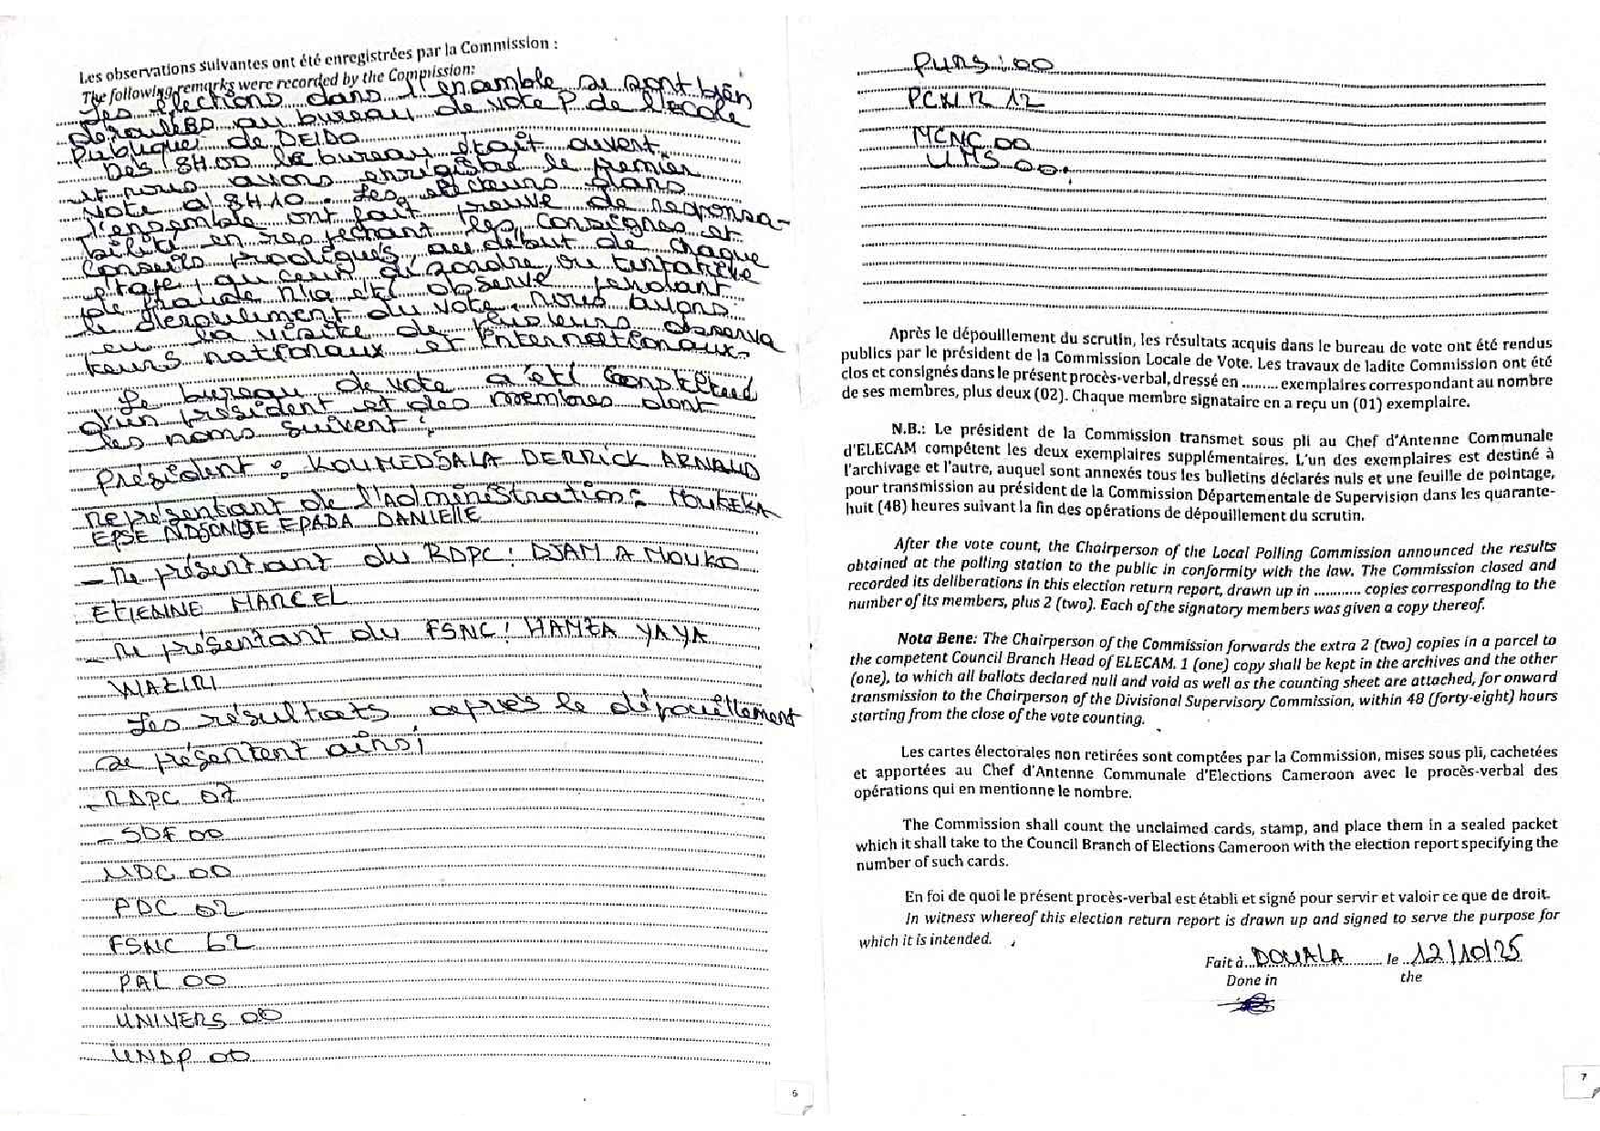 Les observations suivantes ont été enregistrées par la Commission :
The following remarks were recorded by the Commission:
Les élections dans l'ensemble se sont bien
déroulées au bureau de vote P de l'école
Publique de DEIDO.
Dès 8H00 le bureau était ouvert
et nous avons enregistré le premier
vote à 8H10. Les électeurs dans
l'ensemble ont fait preuve de responsa-
bilité en respectant les consignes et
conseils prodigués, au début de chaque
étape, aucun désordre, ou tentative
de fraude n'a été observé pendant
le déroulement du vote. nous avons
eu la visite de plusieurs observa
teurs nationaux et internationaux.
Le bureau de vote a été constitué
d'un président et des membres dont
les noms suivent :
Président : KOUMEDSALA DERRICK ARNAUD
Représentant de l'administration : MOUKEKA
EPSE NDJONDJE EPADA DANIELLE
- Représentant du RDPC : DJAM A MOUKO
ETIENNE MARCEL
- Représentant du FSNC : HAMZA YAYA
WAZIRI
Les résultats après le dépouillement
se présentent ainsi
- RDPC 07
- SDF 00
MDC 00
PDC 02
FSNC 62
PAL 00
UNIVERS 00
UNDP 00
6
PURS : 00
PCRN 12
MCNC 00
UMS 00.
Après le dépouillement du scrutin, les résultats acquis dans le bureau de vote ont été rendus
publics par le président de la Commission Locale de Vote. Les travaux de ladite Commission ont été
clos et consignés dans le présent procès-verbal, dressé en ......... exemplaires correspondant au nombre
de ses membres, plus deux (02). Chaque membre signataire en a reçu un (01) exemplaire.
N.B.: Le président de la Commission transmet sous pli au Chef d'Antenne Communale
d'ELECAM compétent les deux exemplaires supplémentaires. L'un des exemplaires est destiné à
l'archivage et l'autre, auquel sont annexés tous les bulletins déclarés nuls et une feuille de pointage,
pour transmission au président de la Commission Départementale de Supervision dans les quarante-
huit (48) heures suivant la fin des opérations de dépouillement du scrutin.
After the vote count, the Chairperson of the Local Polling Commission announced the results
obtained at the polling station to the public in conformity with the law. The Commission closed and
recorded its deliberations in this election return report, drawn up in ........... copies corresponding to the
number of its members, plus 2 (two). Each of the signatory members was given a copy thereof.
Nota Bene: The Chairperson of the Commission forwards the extra 2 (two) copies in a parcel to
the competent Council Branch Head of ELECAM. 1 (one) copy shall be kept in the archives and the other
(one), to which all ballots declared null and void as well as the counting sheet are attached, for onward
transmission to the Chairperson of the Divisional Supervisory Commission, within 48 (forty-eight) hours
starting from the close of the vote counting.
Les cartes électorales non retirées sont comptées par la Commission, mises sous pli, cachetées
et apportées au Chef d'Antenne Communale d'Elections Cameroon avec le procès-verbal des
opérations qui en mentionne le nombre.
The Commission shall count the unclaimed cards, stamp, and place them in a sealed packet
which it shall take to the Council Branch of Elections Cameroon with the election report specifying the
number of such cards.
En foi de quoi le présent procès-verbal est établi et signé pour servir et valoir ce que de droit.
In witness whereof this election return report is drawn up and signed to serve the purpose for
which it is intended.
Fait à DOUALA le 12/10/25
Done in the
7